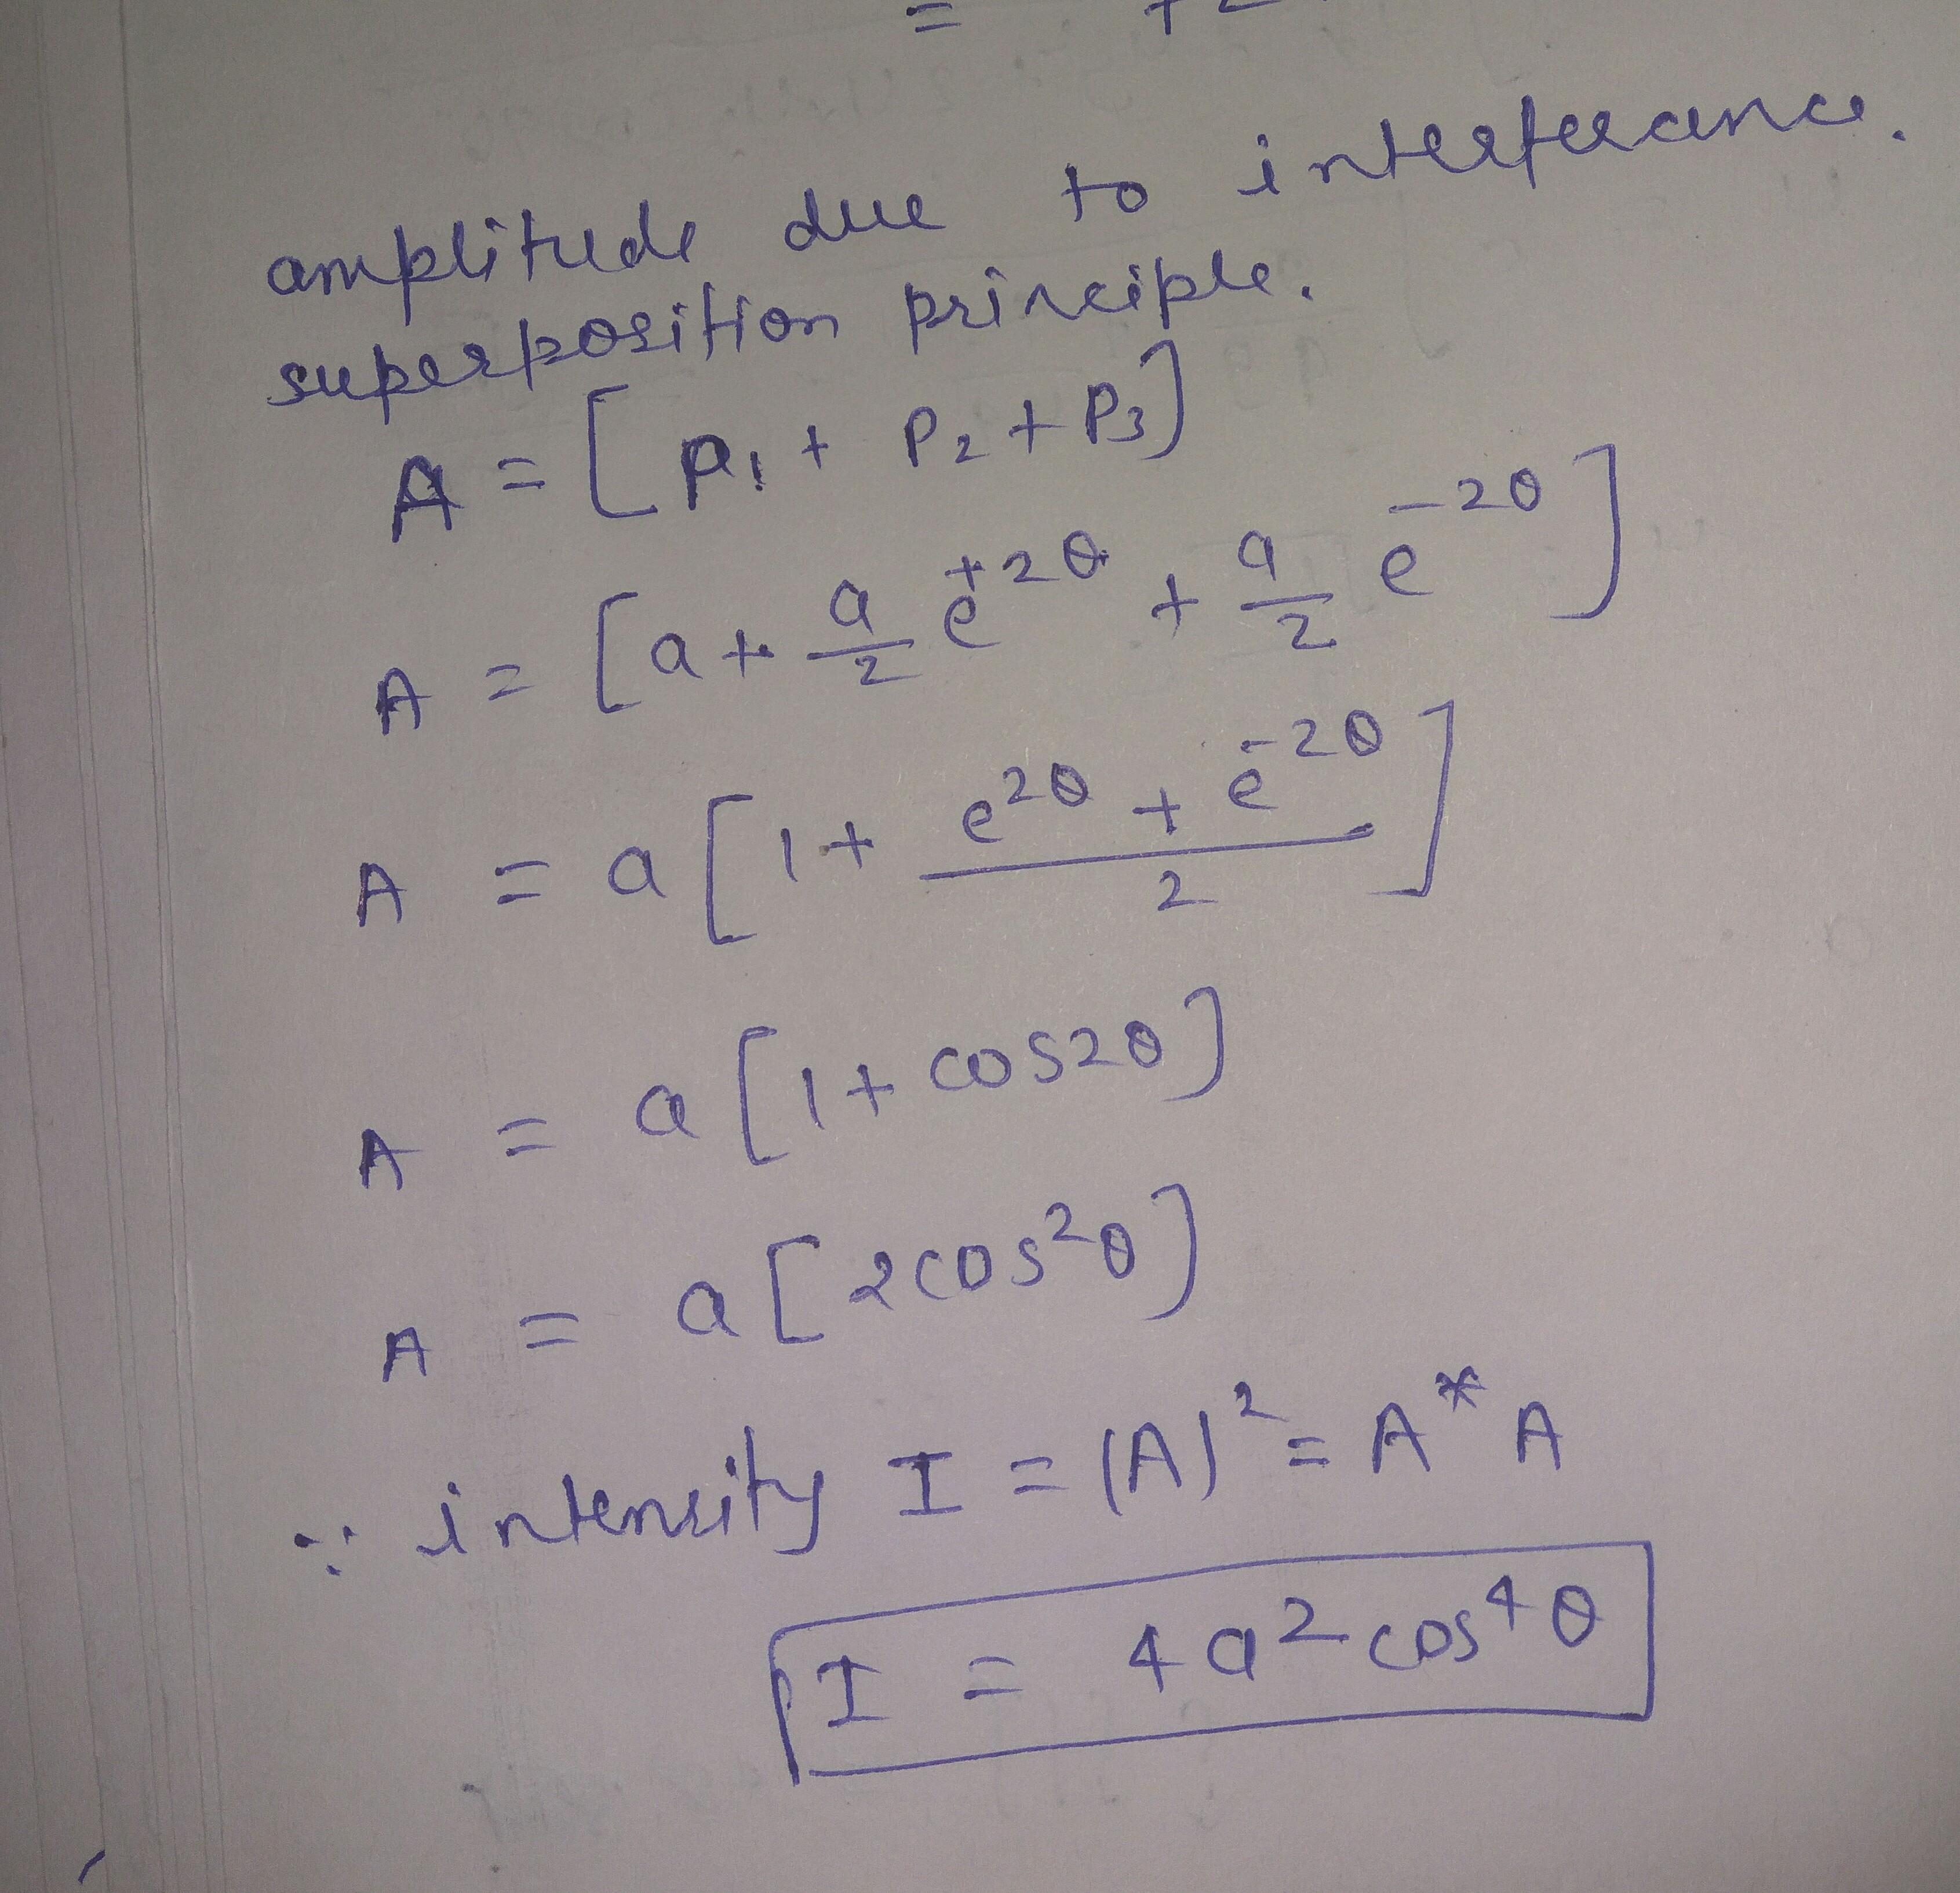 =
amplitude due to interferance.
superposition principle.
A = [P₁ + P₂ + P₃]
A = [a + a/2 e^{+2θ} + a/2 e^{-2θ}]
A = a[1 + (e^{2θ} + e^{-2θ})/2]
A = a[1 + cos2θ]
A = a[2cos²θ]
∵ intensity I = (A)² = A* A
I = 4a² cos⁴θ